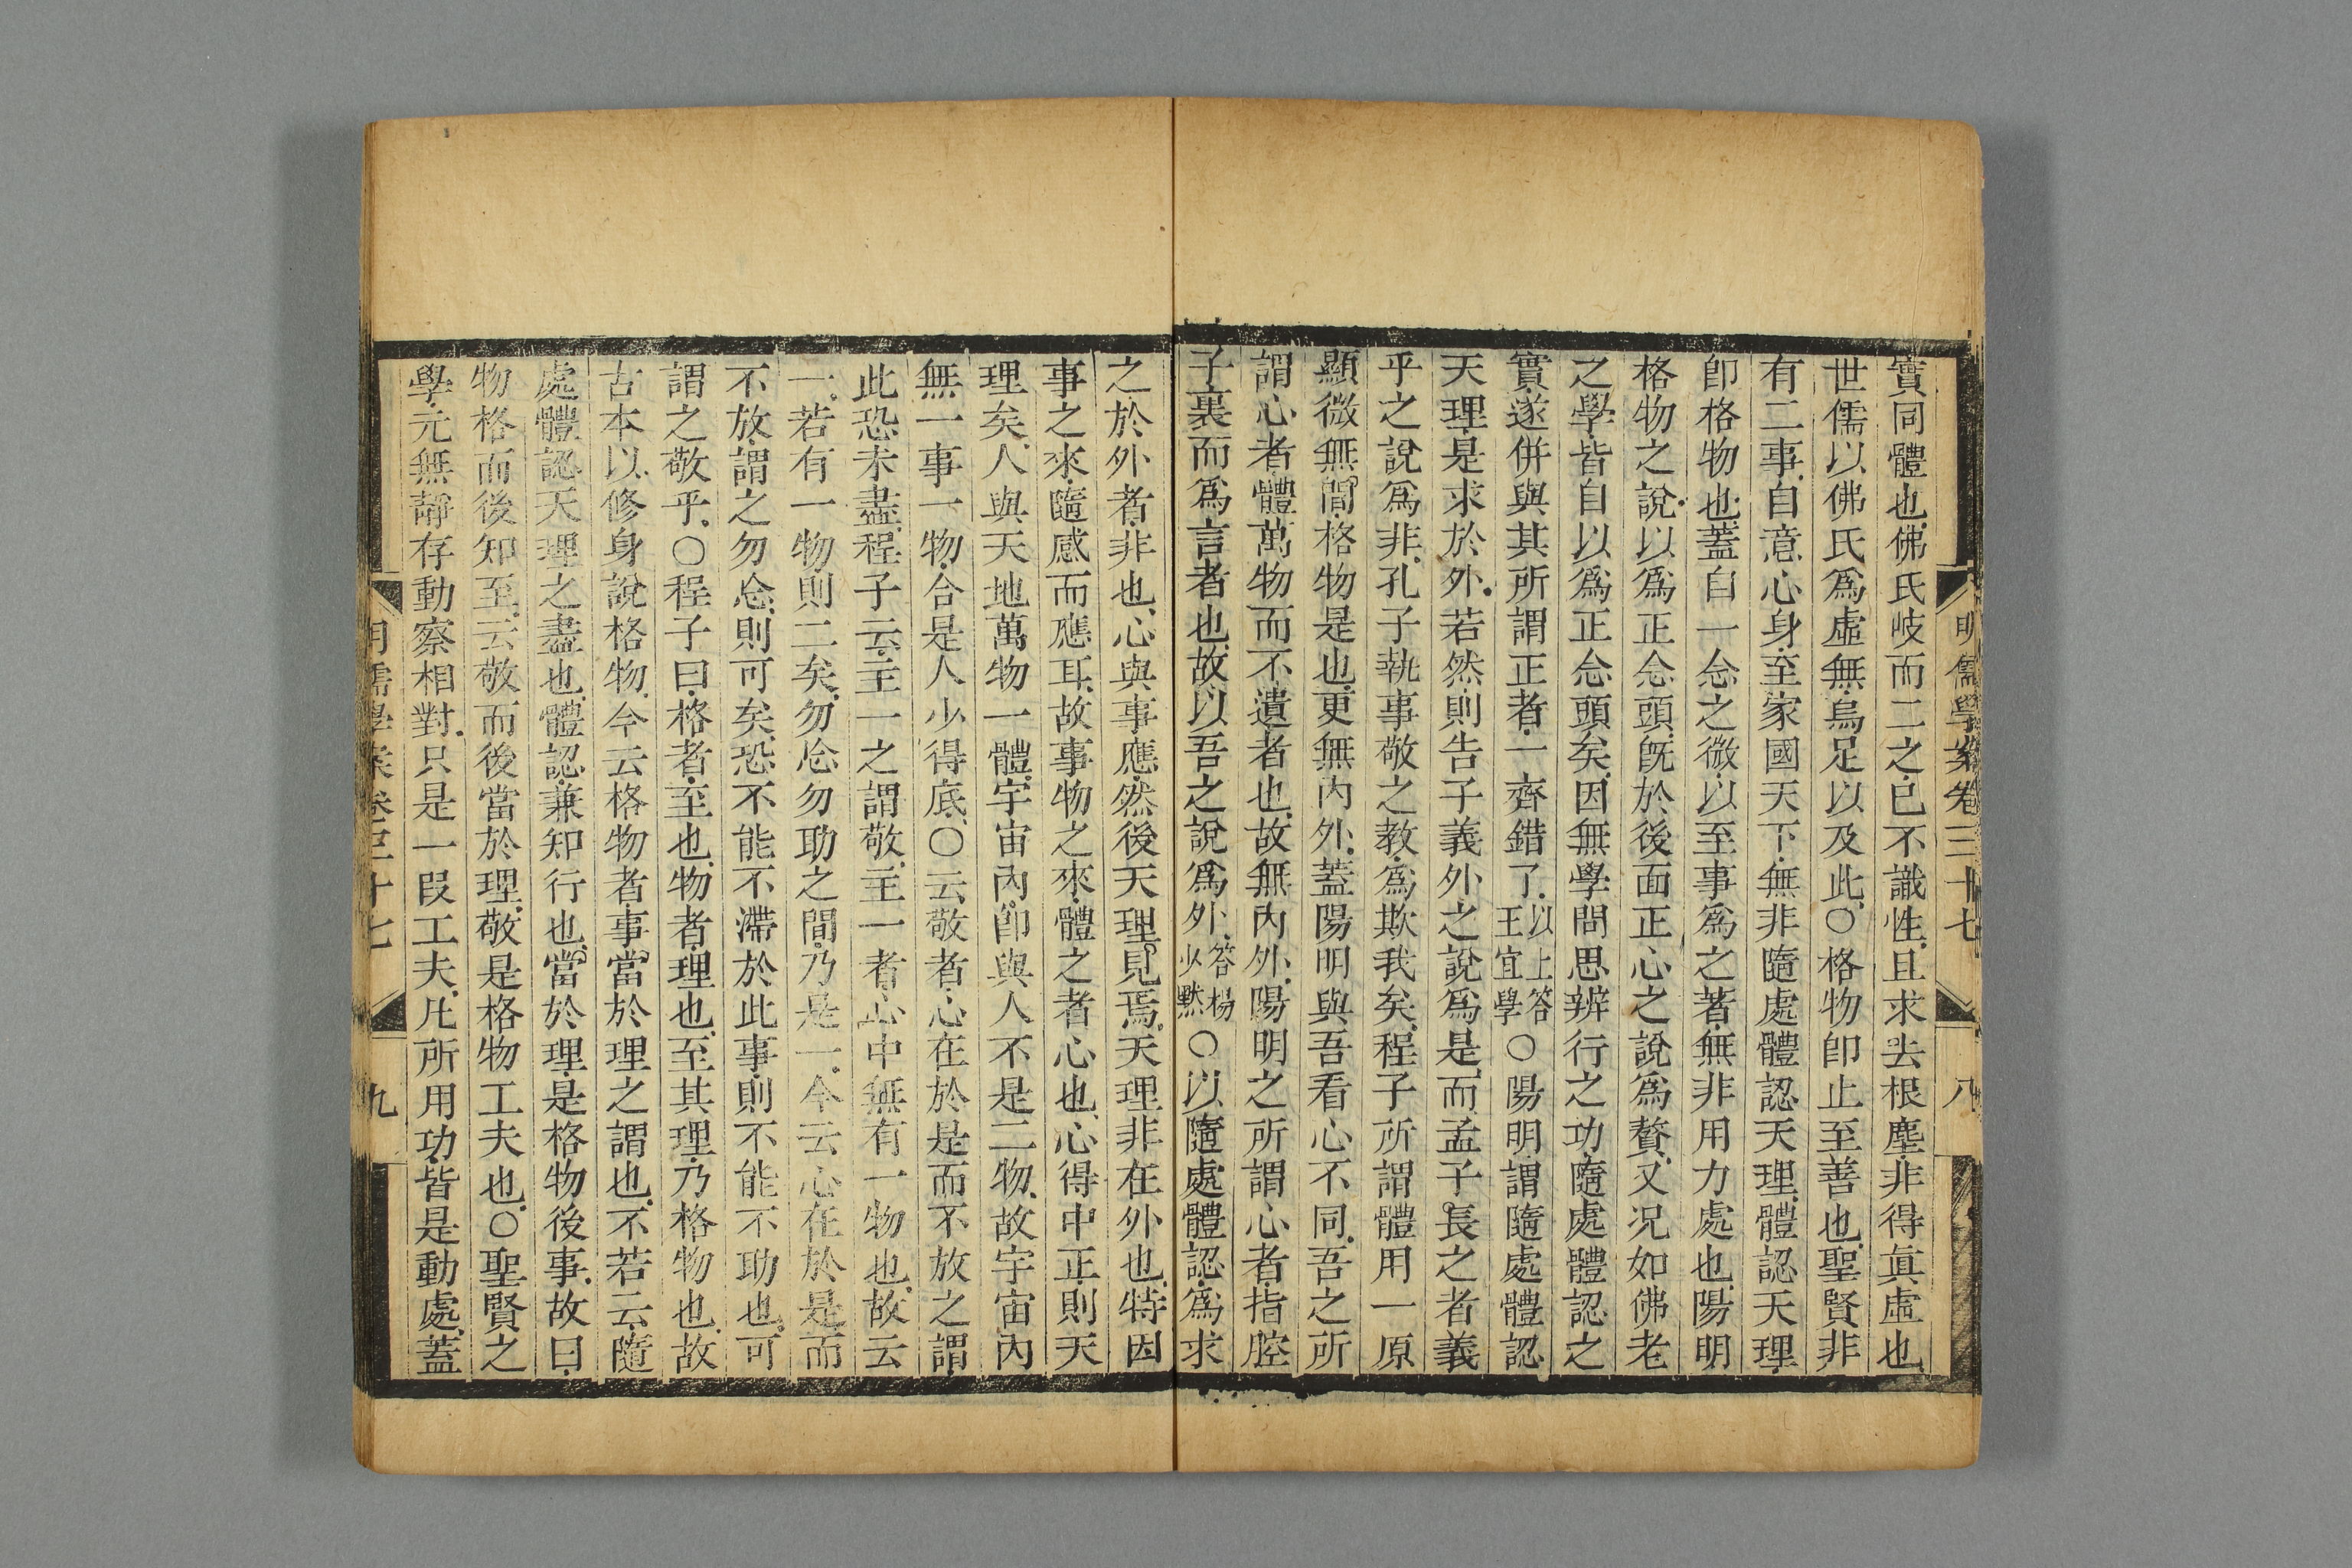 明儒學案卷三十七 八
實同體也佛氏岐而二之已不識性且求去根塵非得真虛也
世儒以佛氏爲虛無烏足以及此○格物卽止至善也聖賢非
有二事自意心身至家國天下無非隨處體認天理體認天理
卽格物也蓋自一念之微以至事爲之著無非用力處也陽明
格物之說以爲正念頭旣於後面正心之說爲贅又况如佛老
之學皆自以爲正念頭矣因無學問思辨行之功隨處體認之
實遂併與其所謂正者一齊錯了以上答王宜學○陽明謂隨處體認
天理是求於外若然則告子義外之說爲是而孟子長之者義
乎之說爲非孔子執事敬之教爲欺我矣程子所謂體用一原
顯微無間格物是也更無內外蓋陽明與吾看心不同吾之所
謂心者體萬物而不遺者也故無內外陽明之所謂心者指腔
子裏而爲言者也故以吾之說爲外答楊少默○以隨處體認爲求
之於外者非也心與事應然後天理見焉天理非在外也特因
事之來隨感而應耳故事物之來體之者心也心得中正則天
理矣人與天地萬物一體宇宙內卽與人不是二物故宇宙內
無一事一物合是人少得底○云敬者心在於是而不放之謂
此恐未盡程子云主一之謂敬主一者心中無有一物也故云
一若有一物則二矣勿忘勿助之間乃是一今云心在於是而
不放謂之勿忘則可矣恐不能不滯於此事則不能不助也可
謂之敬乎○程子曰格者至也物者理也至其理乃格物也故
古本以修身說格物今云格物者事當於理之謂也不若云隨
處體認天理之盡也體認兼知行也當於理是格物後事故曰
物格而後知至云敬而後當於理敬是格物工夫也○聖賢之
學元無靜存動察相對只是一段工夫凡所用功皆是動處蓋
明儒學案卷三十七 九